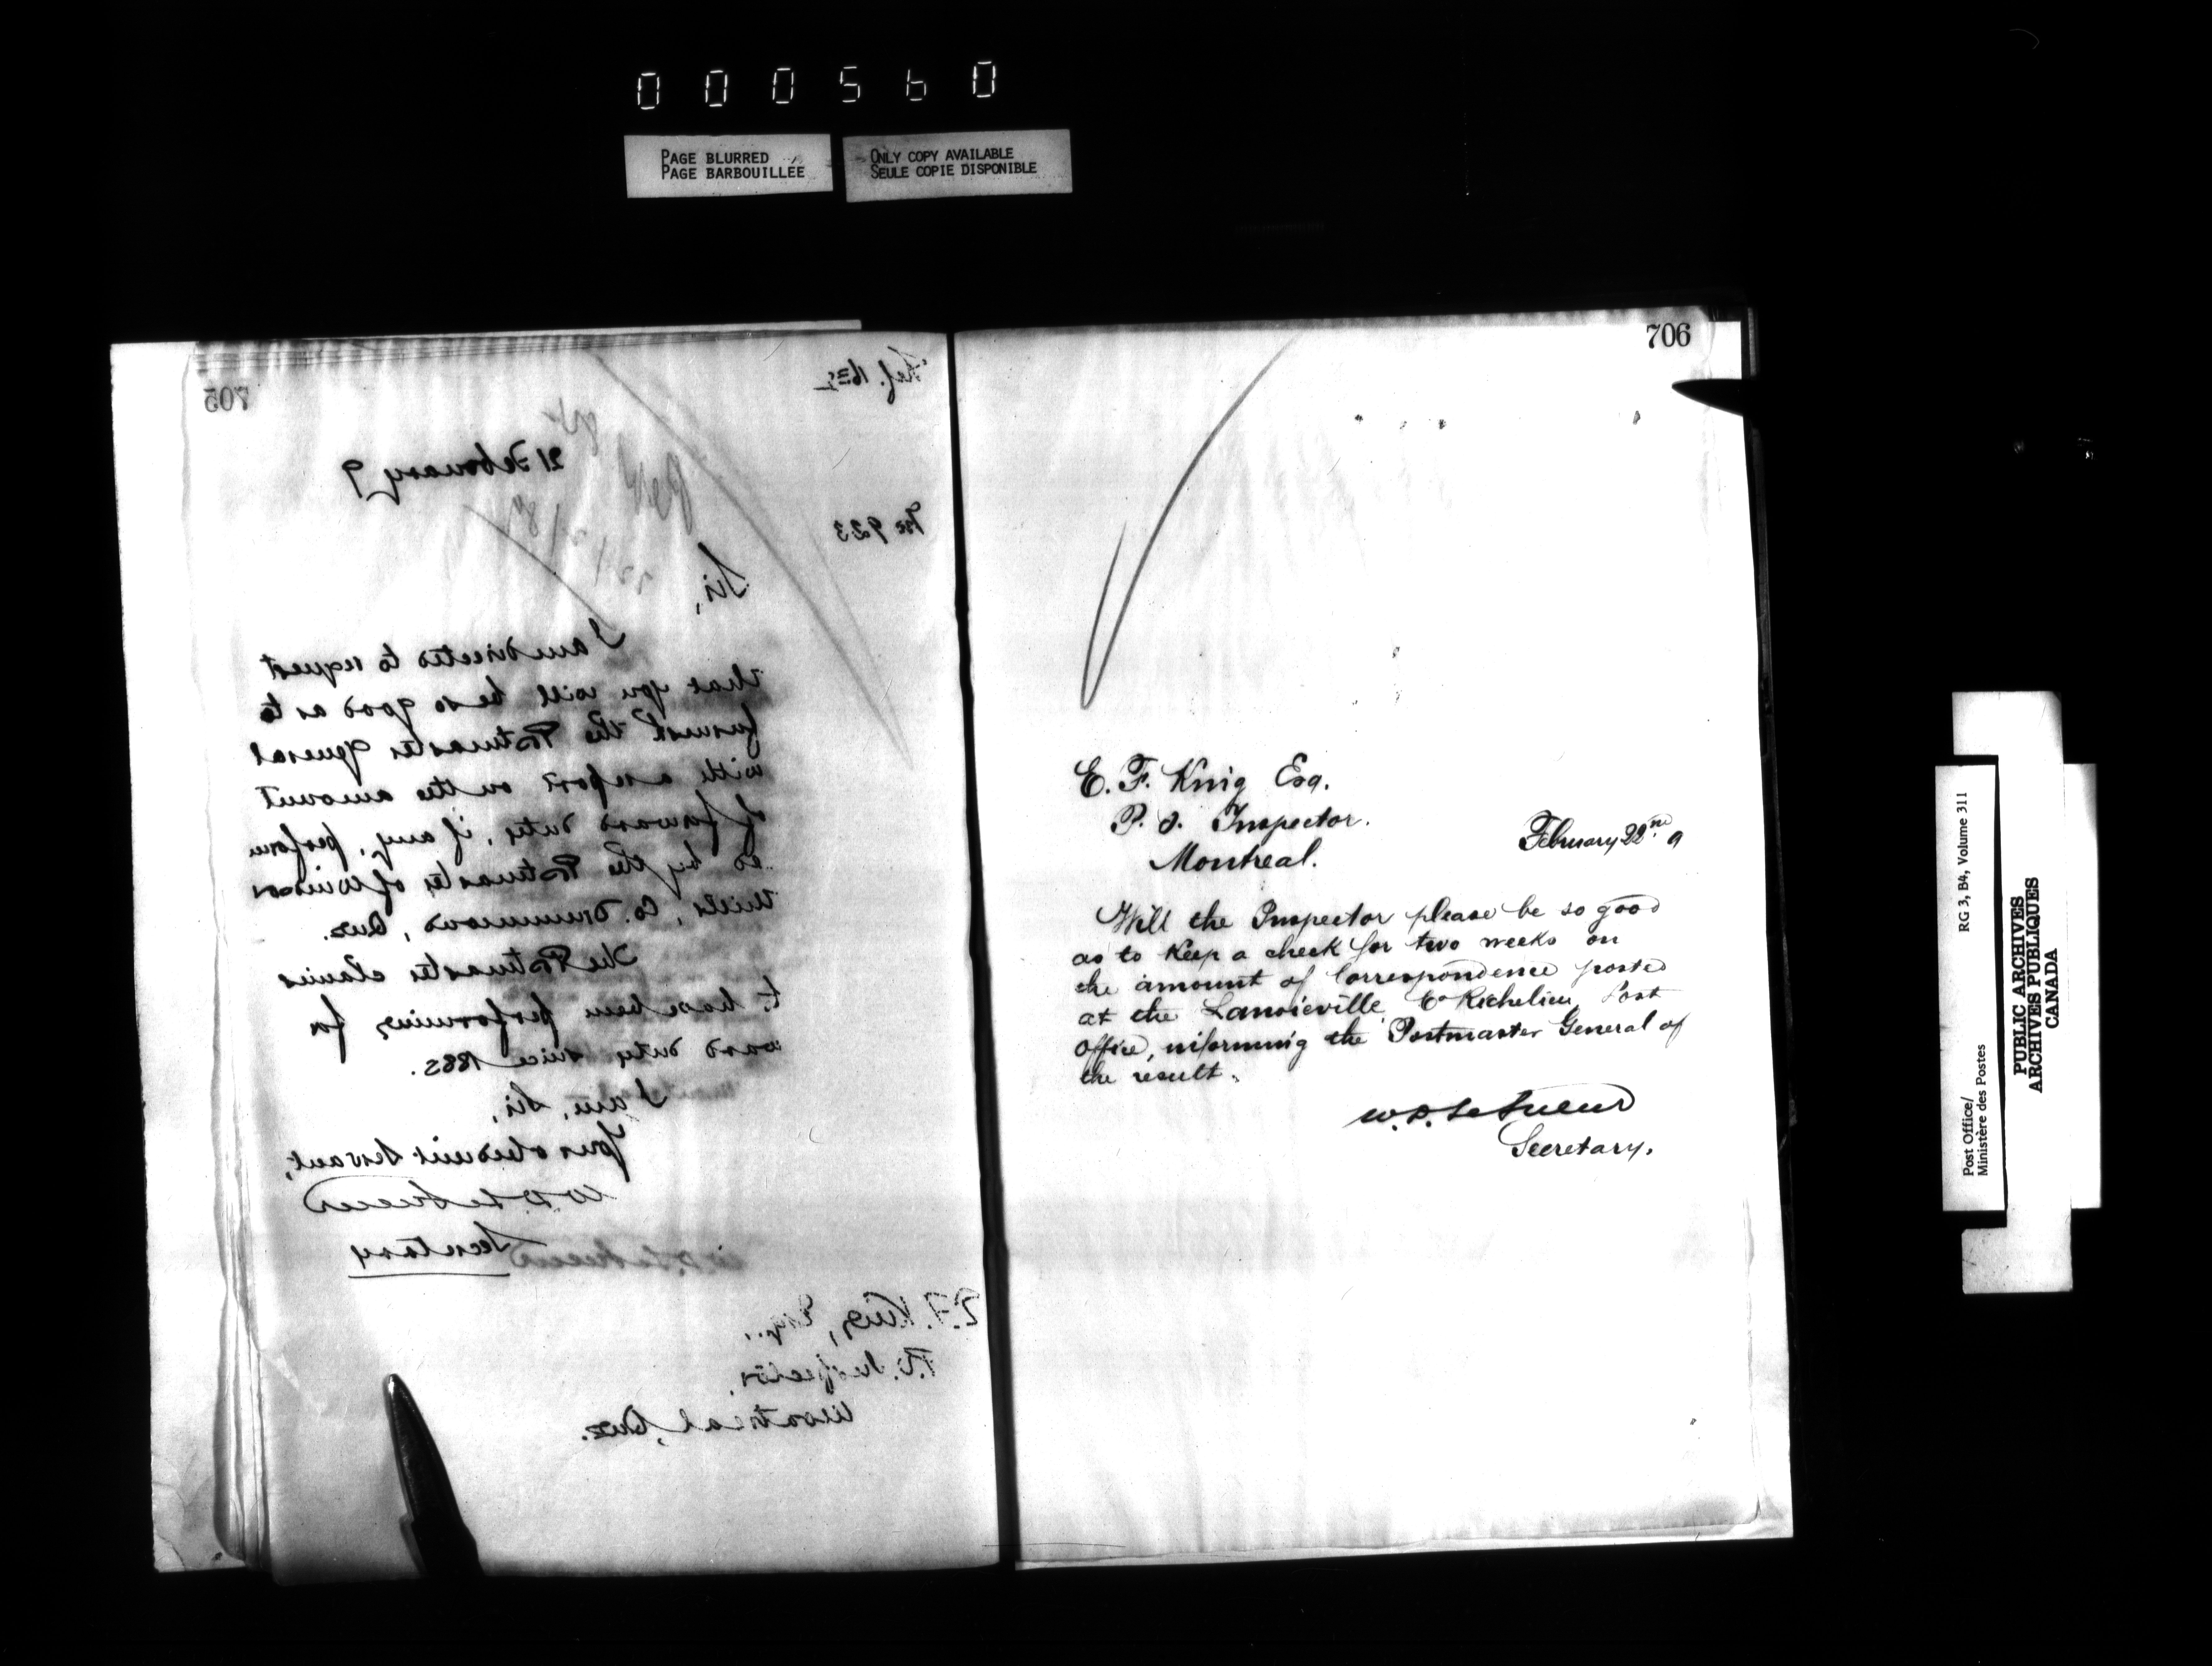 000560
PAGE BLURRED
PAGE BARBOUILLÉE
ONLY COPY AVAILABLE
SEULE COPIE DISPONIBLE
705
21 February 9
No 923
Sir,
I am directed to request
that you will be so good as to
furnish the Postmaster General
with a report on the amount
of forward duty, if any, perform
ed by the Postmaster of Windsor
Mills, Co. Drummond, Que.
The Postmaster claims
to have been performing for
ward duty since 1882.
I am, Sir,
Your obedient Servant,
W D LeSueur
Secretary
E.F. King, Esq.,
P.O. Inspector,
Montreal, Que.
706
E. F. King Esq.
P. O. Inspector.
Montreal.
February 22nd 9
Will the Inspector please be so good
as to keep a check for two weeks on
the amount of Correspondence posted
at the Lanoieville, Co Richelieu, Post
Office, informing the Postmaster General of
the result.
W. D. LeSueur
Secretary.
Post Office/
Ministère des Postes
RG 3, B4, Volume 311
PUBLIC ARCHIVES
ARCHIVES PUBLIQUES
CANADA